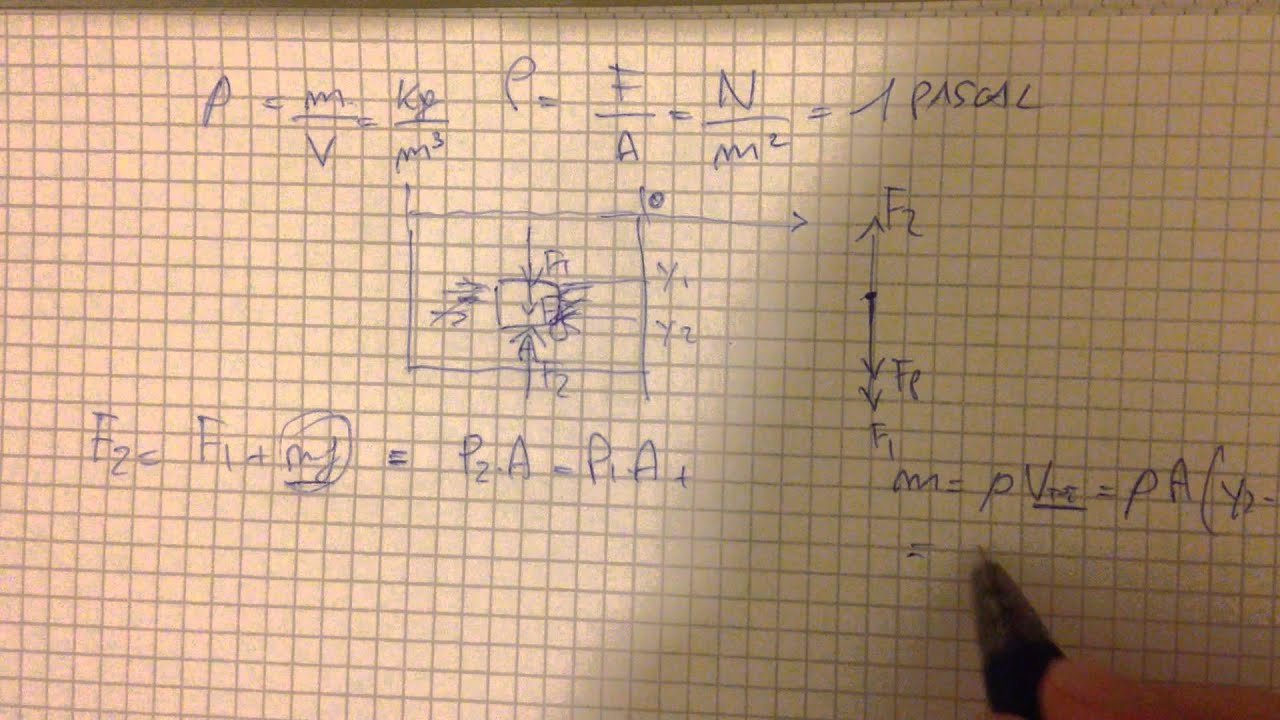 ρ = m/V = Kg/m³ P = F/A = N/m² = 1 PASCAL
0
F₂
F₁
y₁
y₂
F₂
Fp
F₁
F₂ = F₁ + mg = P₂.A = P₁.A +
m = ρ V = ρ A (y₂ -
=